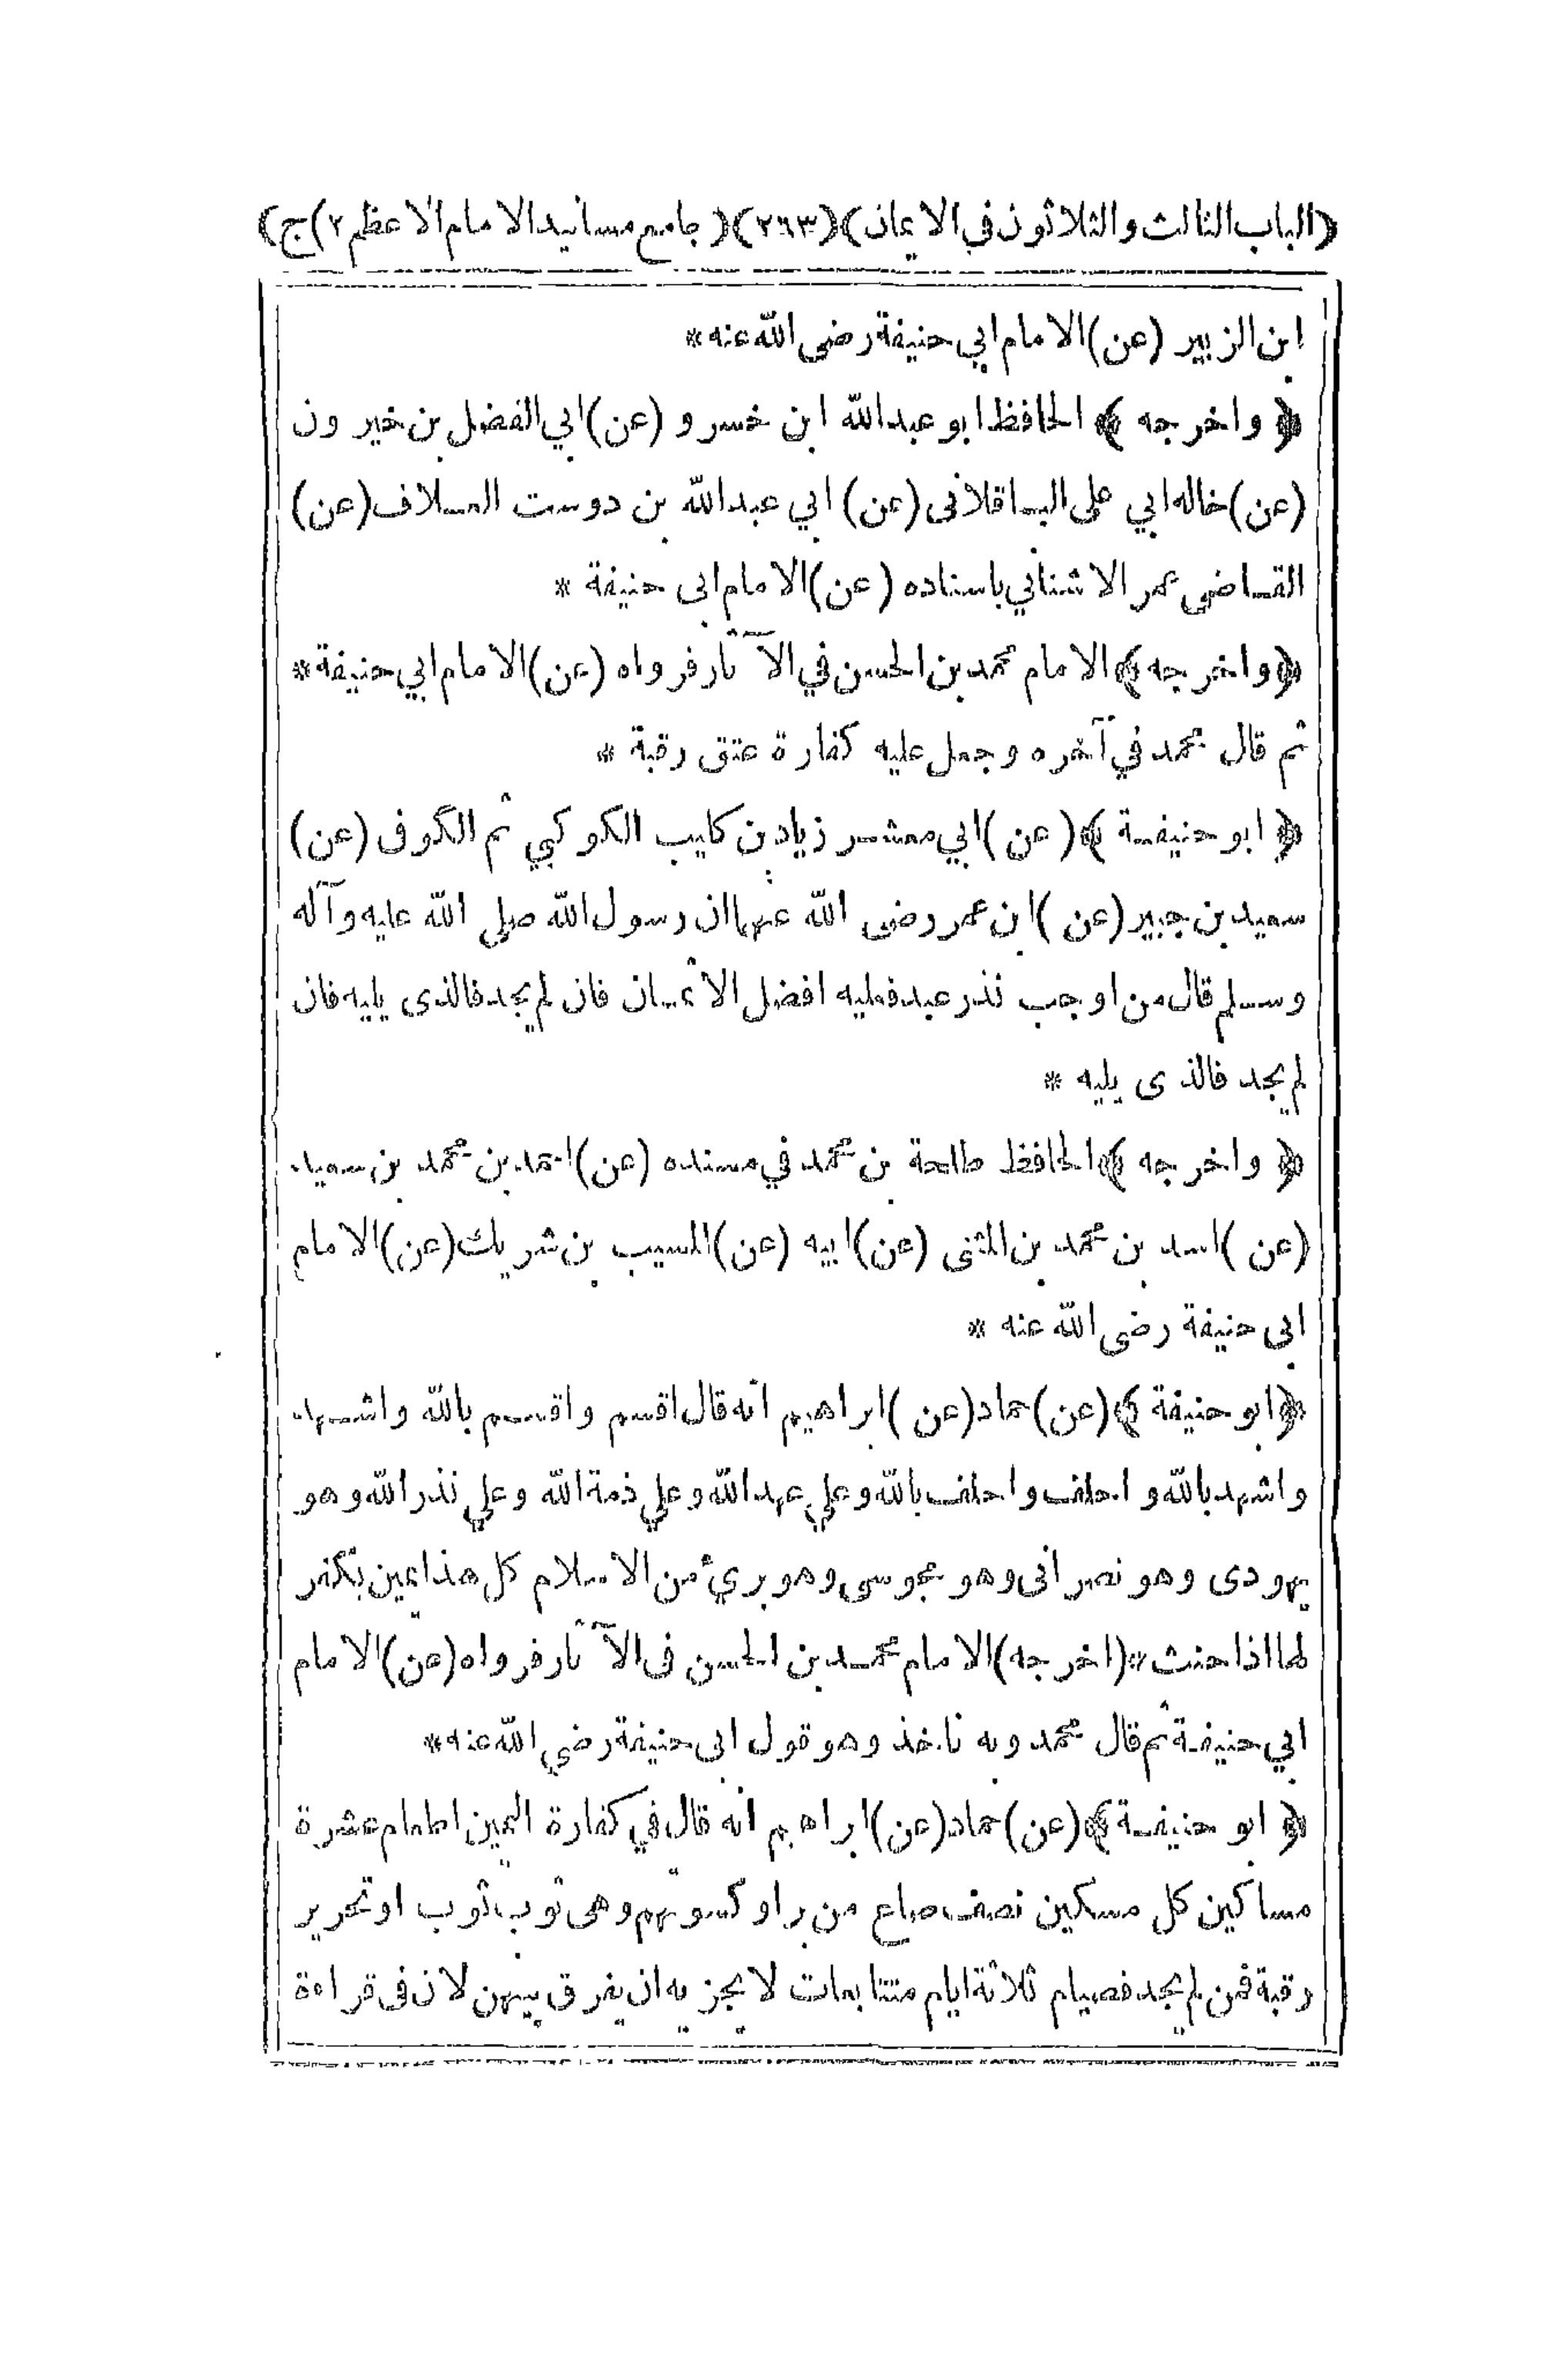 (الباب الثالث والثلاثون في الايمان) (٢٦٣) (جامع مسانيد الامام الاعظم ٢) ج)
ابن الزبير (عن) الامام ابي حنيفة رضى الله عنه *
﴿ واخرجه ﴾ الحافظ ابو عبد الله ابن خسرو (عن) ابي الفضل بن خيرون
(عن) خاله ابي على الباقلانى (عن) ابي عبد الله بن دوست العلاف (عن)
القاضى عمر الاشناني باسناده (عن) الامام ابى حنيفة *
﴿ واخرجه ﴾ الامام محمد بن الحسن في الآثار فرواه (عن) الامام ابي حنيفة *
ثم قال محمد في آخره وجعل عليه كفارة عتق رقبة *
﴿ ابو حنيفة ﴾ (عن) ابي معشر زياد بن كليب الكوكبي ثم الكوفى (عن)
سعيد بن جبير (عن) ابن عمر رضى الله عنهما ان رسول الله صلى الله عليه وآله
وسلم قال من اوجب نذر عبد فعليه افضل الاثمان فان لم يجد فالذى يليه فان
لم يجد فالذى يليه *
﴿ واخرجه ﴾ الحافظ طلحة بن محمد في مسنده (عن) احمد بن محمد بن سعيد
(عن) اسد بن محمد بن المثنى (عن) ابيه (عن) المسيب بن شريك (عن) الامام
ابى حنيفة رضى الله عنه *
﴿ ابو حنيفة ﴾ (عن) حماد (عن) ابراهيم انه قال اقسم واقسم بالله واشهد
واشهد بالله و احلف واحلف بالله وعلي عهد الله وعلي ذمة الله وعلي نذر الله وهو
يهودى وهو نصرانى وهو مجوسى وهو بريئ من الاسلام كل هذا يمين يكفر
لها اذا حنث * (اخرجه) الامام محمد بن الحسن فى الآثار فرواه (عن) الامام
ابي حنيفة ثم قال محمد وبه ناخذ وهو قول ابى حنيفة رضي الله عنه *
﴿ ابو حنيفة ﴾ (عن) حماد (عن) ابراهيم انه قال في كفارة اليمين اطعام عشرة
مساكين كل مسكين نصف صاع من بر او كسوتهم وهى ثوب ثوب او تحرير
رقبة فمن لم يجد فصيام ثلاثة ايام متتابعات لا يجزيه ان يفرق بينهن لان فى قراءة